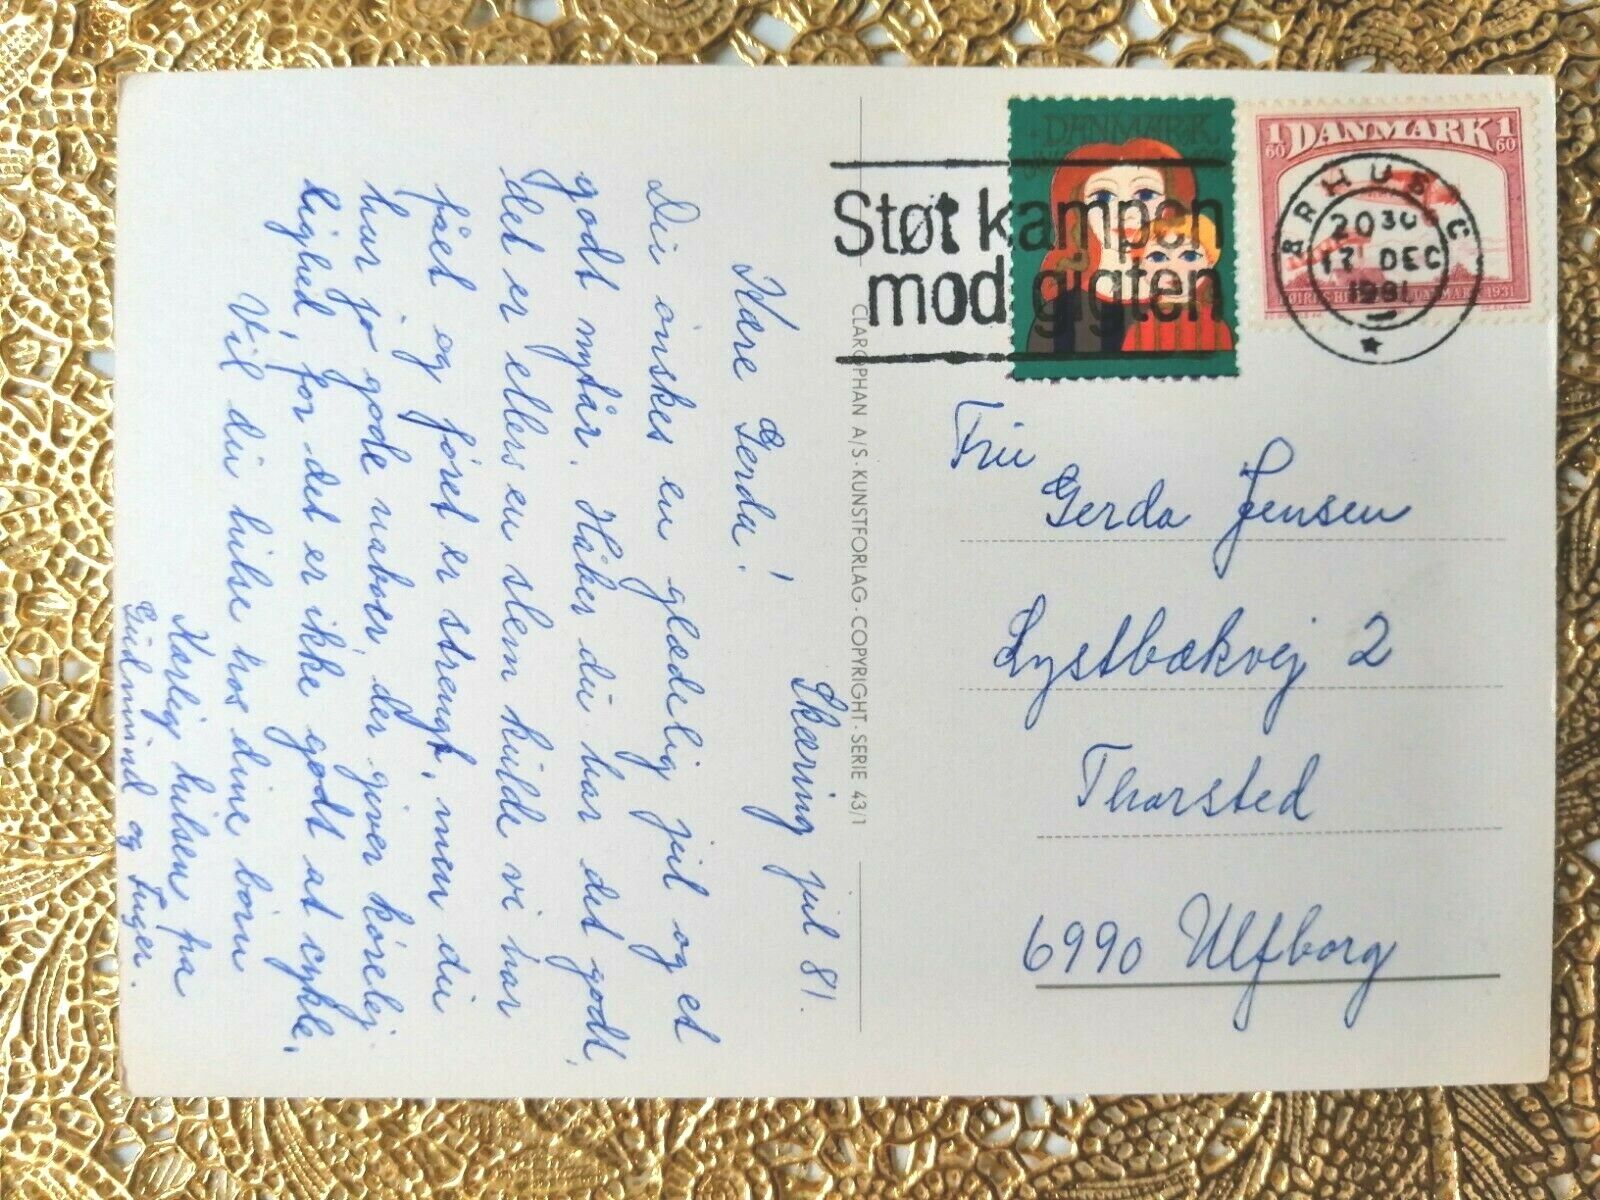 Skæring jul 81.
Kære Gerda!
Du ønskes en glædelig jul og et
godt nytår. Håber du har det godt,
det er ellers en slem kulde vi har
fået og føret er strengt, men du
har jo gode naboer, der giver kørelej
lighed, for det er ikke godt at cykle.
Vil du hilse hos dine børn
Kærlig hilsen fra
Gudmund og Inger.
CLAROPHAN A/S · KUNSTFORLAG · COPYRIGHT · SERIE 43/1
DANMARK
1 60 DANMARK 1 60
1931
ÅRHUS C
2030
17 DEC
1981
Støt kampen
mod gigten
Fru
Gerda Jensen
Lystbækvej 2
Thorsted
6990 Ulfborg